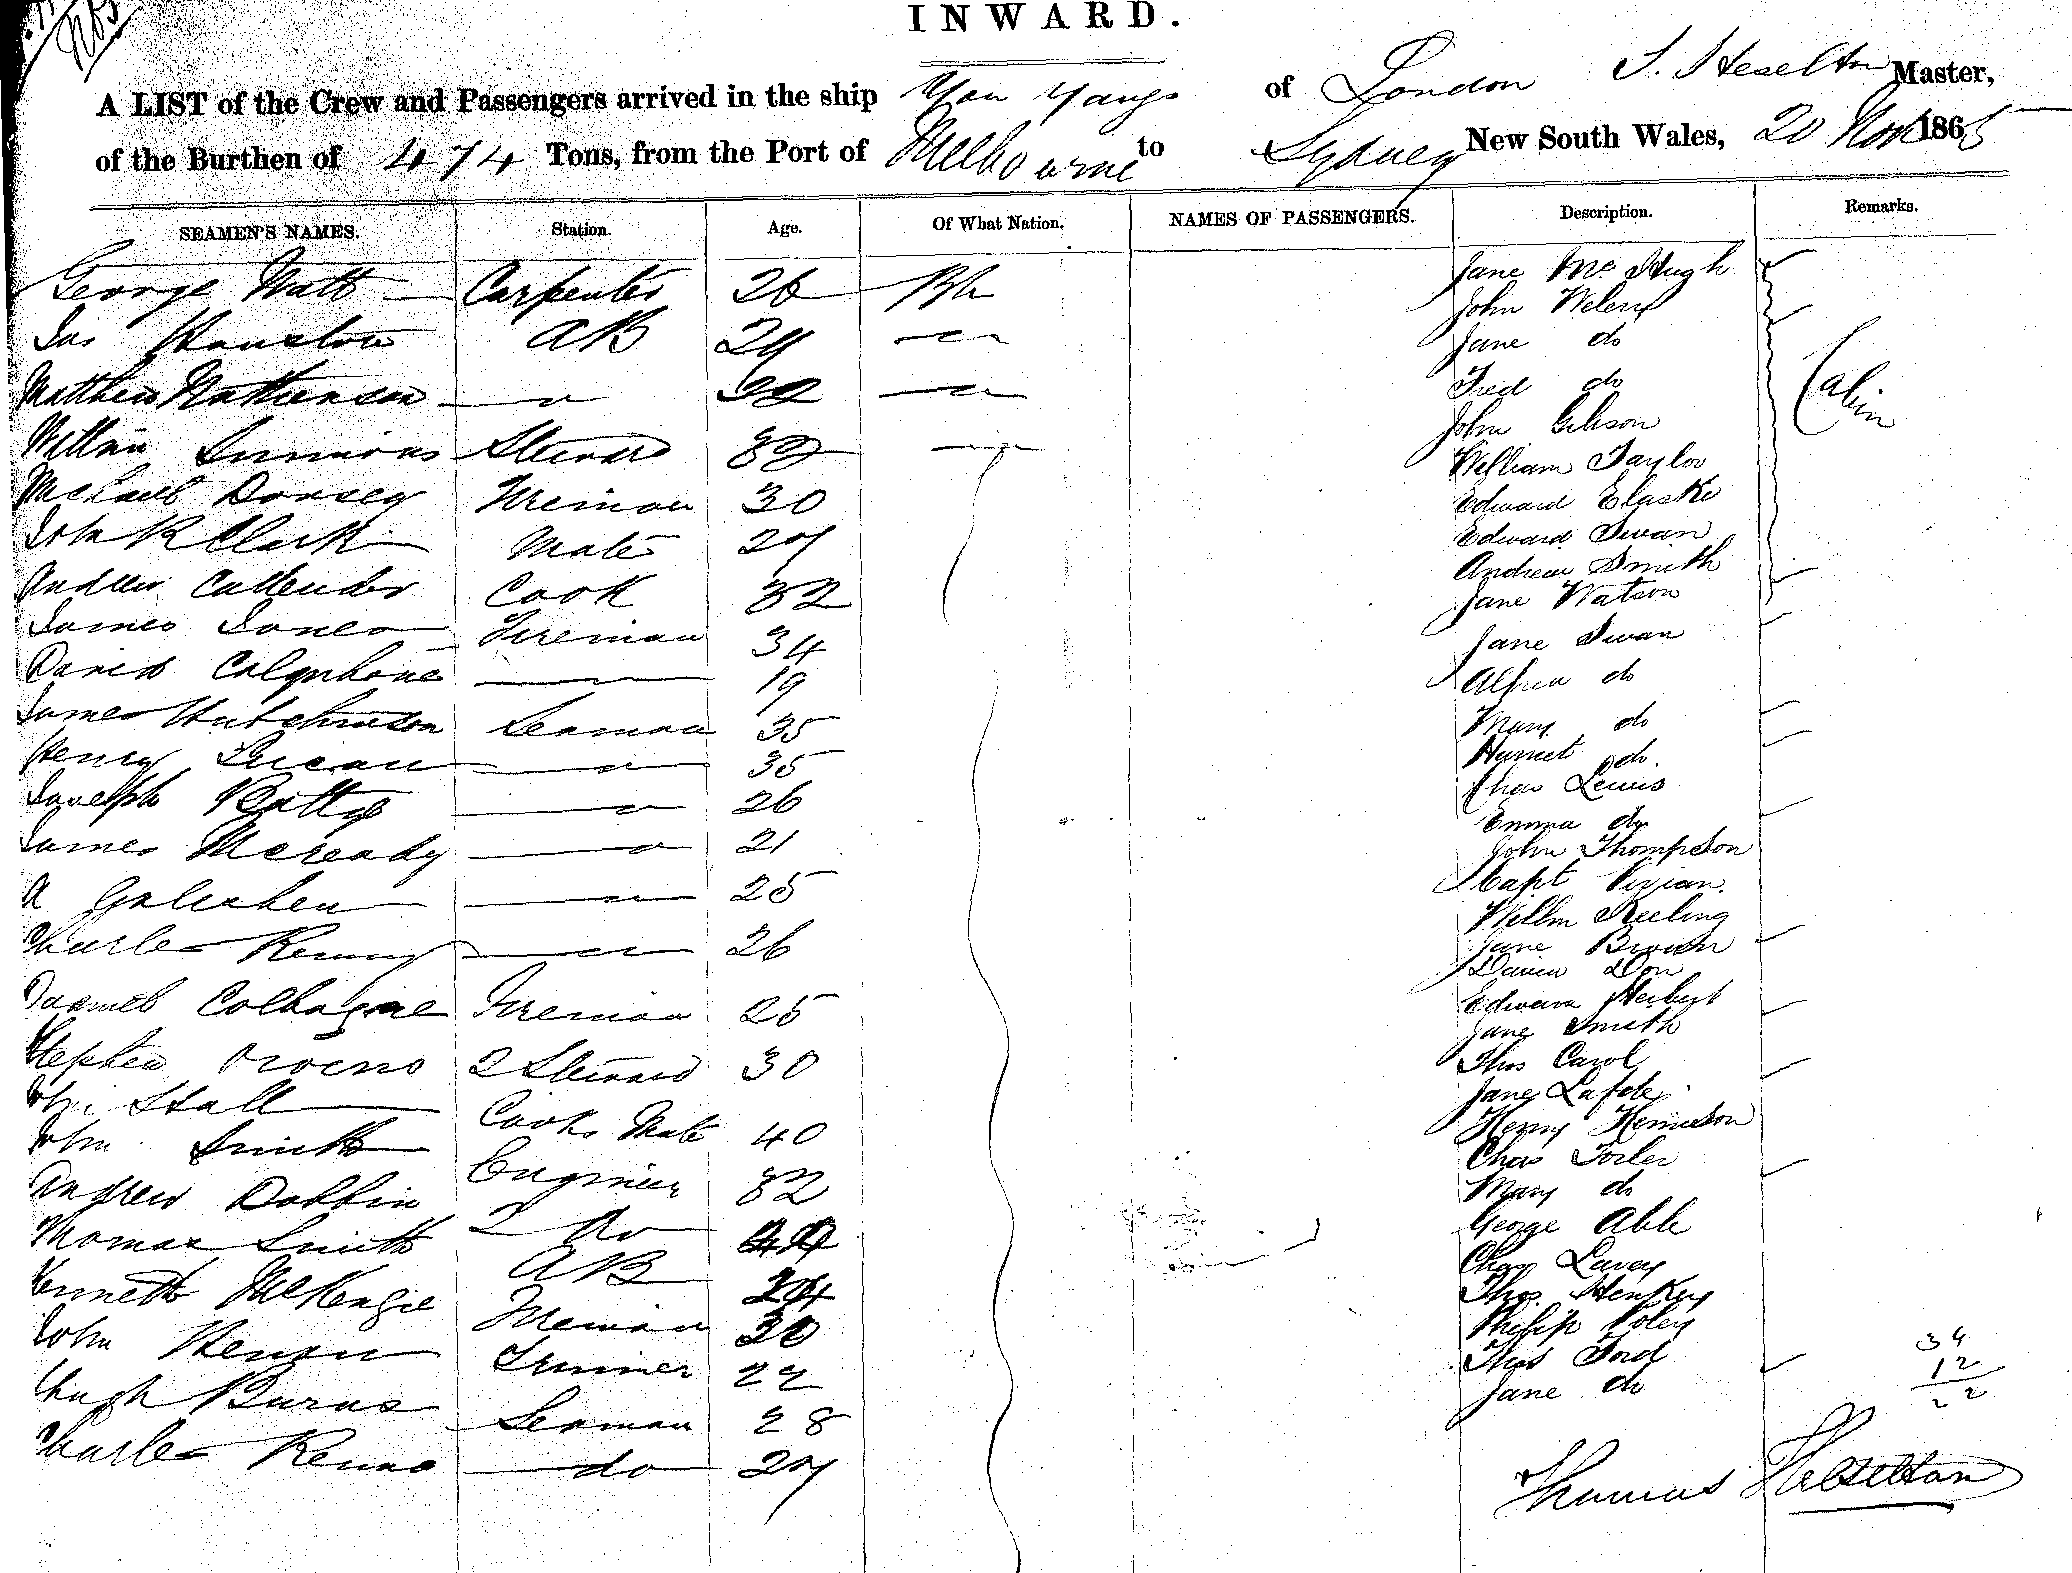 INWARD.
A LIST of the Crew and Passengers arrived in the ship You Yangs of London T. Heselton Master,
of the Burthen of 474 Tons, from the Port of Melbourne to Sydney New South Wales, 20 Nov 1865
SEAMEN'S NAMES. Station. Age. Of What Nation. NAMES OF PASSENGERS. Description. Remarks.
George Watt Carpenter 26 Bh
Jas Houston AB 29
Matthew Mathieson
William Simmons Steward 32
Michael Dorsey Fireman 30
John R Clark Mate 27
Andrew Callender Cook 32
James Jones Fireman 34
David Colquhoune 19
James Hutchinson Seaman 35
Henry 35
Joseph Batty 26
James Mcready 21
A 25
Charles 26
Fireman 25
Stephen Owens 2 Steward 30
John Stall Cooks Mate 40
John Smith Engineer 32
Andrew Dobbin 2 Do
Thomas Smith AB 24
Kenneth McKenzie Fireman 30
John Trimmer 22
Hugh Burns Seaman 28
Charles do 27
Jane McHugh
John
Jane do
Fred do
John Gibson
William Taylor
Edward
Edward Swan
Andrew Smith
Jane Watson
Cabin
Jane Swan
Alfred do
Mary do
Harriet do.
Chas Lewis
Emma do
John Thompson
Capt Vivian
Willm Keeling
Jane Brown
David Don
Edward Herbert
Jane Smith
Thos Carol
Jane
Henry
Chas
Mary do
George Able
Chas
Thos
Philip
Thos Ford
Jane do
34
12
22
Thomas Heselton